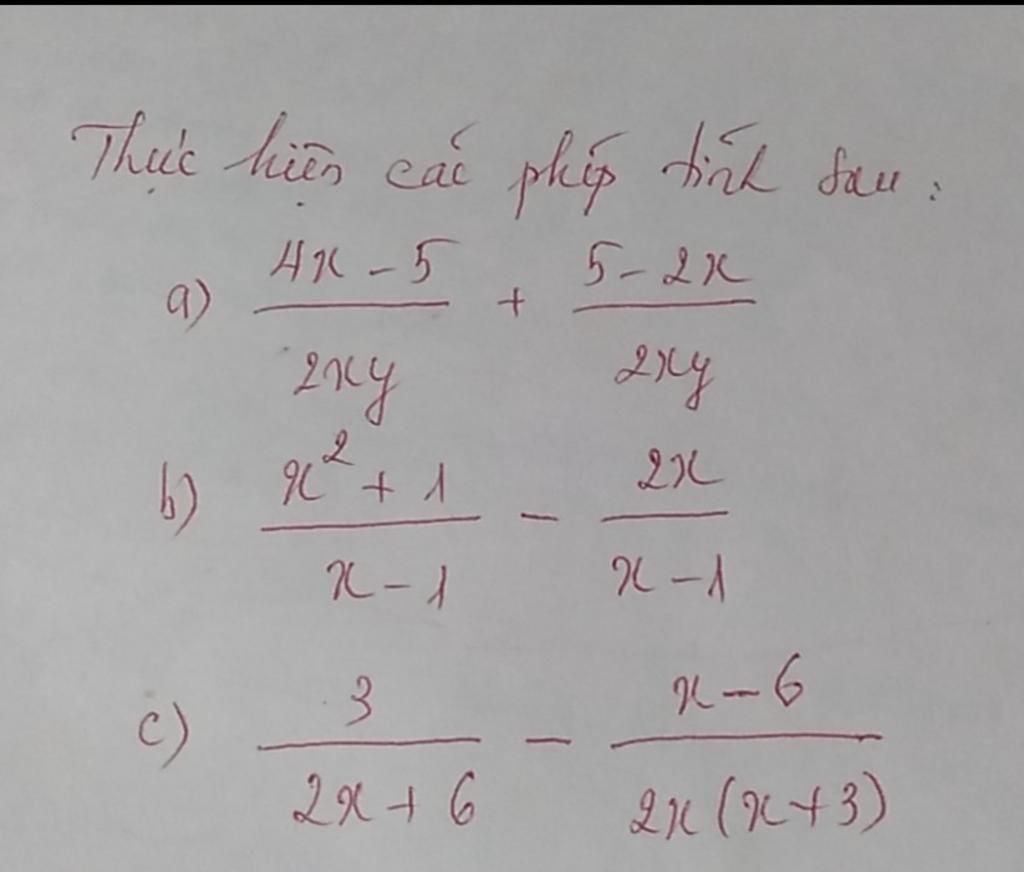 Thực hiện các phép tính sau:
a) \frac{4x - 5}{2xy} + \frac{5 - 2x}{2xy}
b) \frac{x^2 + 1}{x - 1} - \frac{2x}{x - 1}
c) \frac{3}{2x + 6} - \frac{x - 6}{2x(x + 3)}